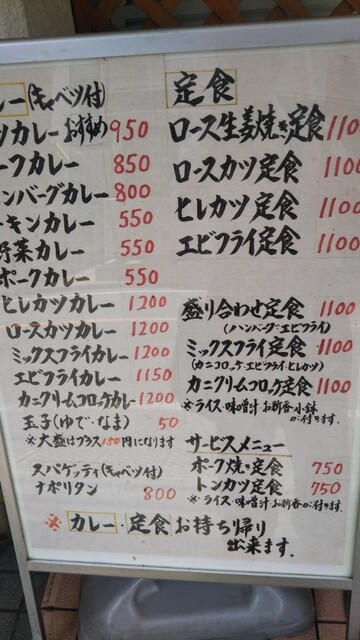 レー(キャベツ付)
ツカレー おすすめ 950
ーフカレー 850
ハンバーグカレー 800
ーキンカレー 550
野菜カレー 550
ポークカレー 550
ヒレカツカレー 1200
ロースカツカレー 1200
ミックスフライカレー 1200
エビフライカレー 1150
カニクリームコロッケカレー 1200
玉子(ゆで・なま) 50
※大盛はプラス150円になります
スパゲッティ(キャベツ付)
ナポリタン 800
定食
ロース生姜焼き定食 1100
ロースカツ定食 1100
ヒレカツ定食 1100
エビフライ定食 1100
盛り合わせ定食 1100
(ハンバーグ・エビフライ)
ミックスフライ定食 1100
(カニコロッケ・エビフライ・ヒレカツ)
カニクリームコロッケ定食 1100
※ライス・味噌汁 お新香・小鉢
が付きます。
サービスメニュー
ポーク焼き定食 750
トンカツ定食 750
・ライス・味噌汁 お新香が付きます。
※カレー・定食お持ち帰り
出来ます。